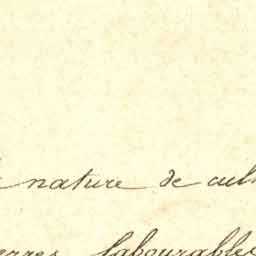 nature de cul
erres labourables